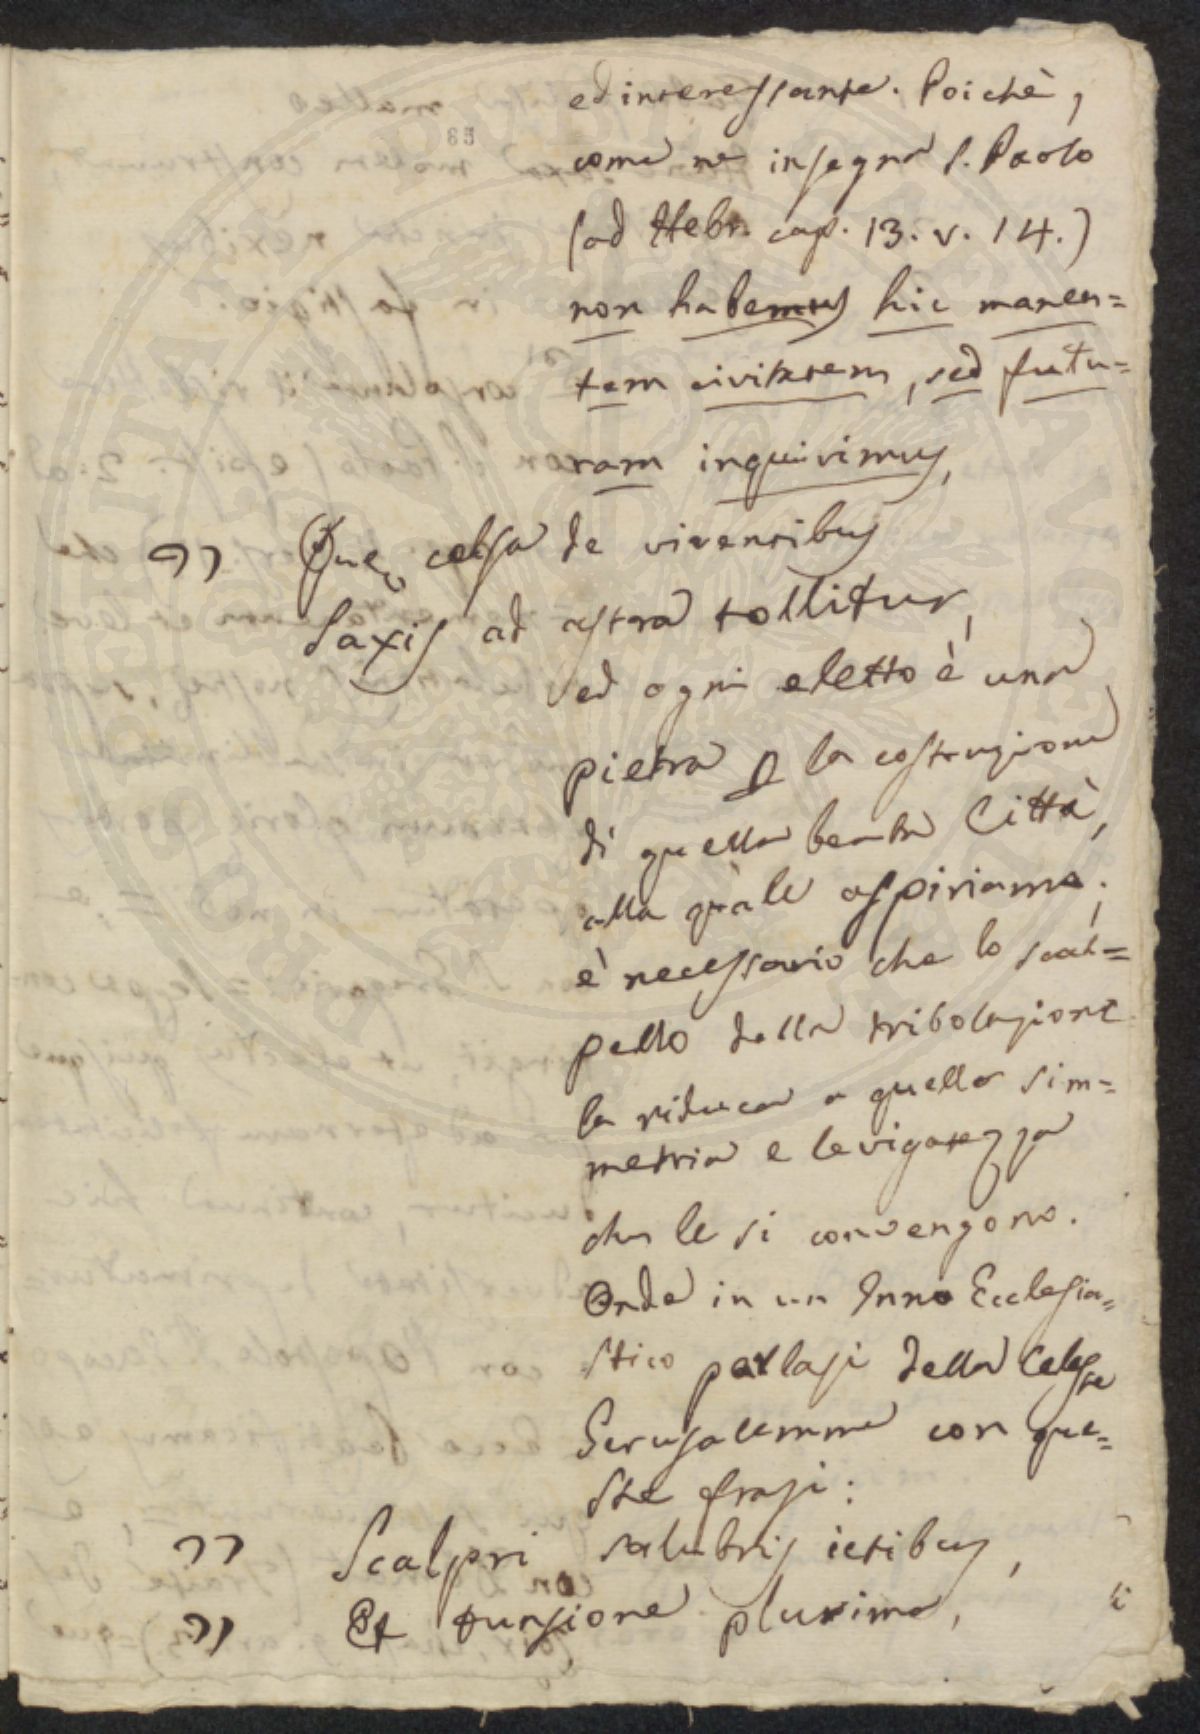 ed interessante. Poichè,
85
come ne insegna S. Paolo
(ad Hebr. cap. 13. v. 14.)
non habemus hic manen=
tem civitatem, sed futu=
ram inquirimus,
" Quæ celsa de viventibus
Saxis ad astra tollitur,
ed ogni eletto è una
pietra p la costruzione
di quella beata Città,
alla quale aspiriamo;
è necessario che lo scal=
pello della tribolazione
la riduca a quella sim=
metria e levigatezza
che le si convengono.
Onde in un Inno Ecclesia=
stico parlasi della Celeste
Gerusalemme con que=
ste frasi:
" Scalpri salubris ictibus,
" Et tunsione plurima,